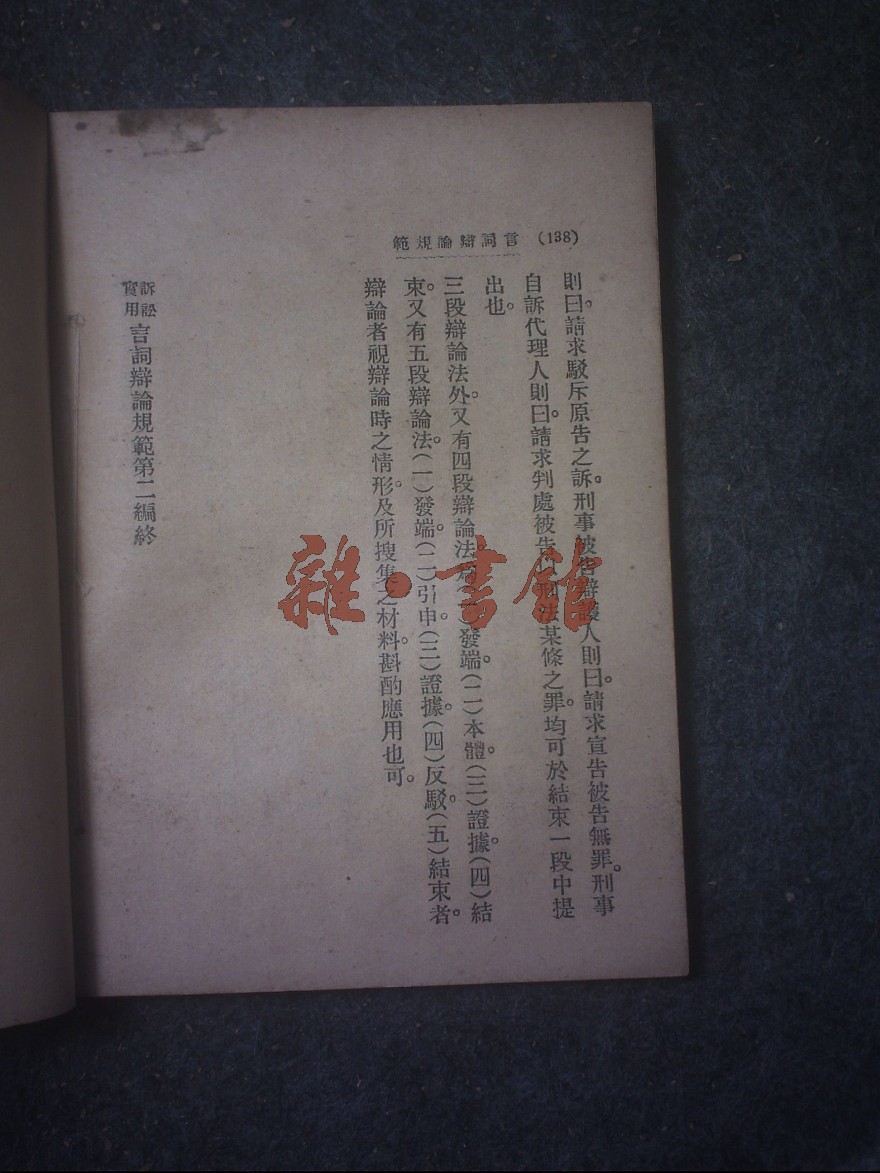 (138) 言詞辯論規範
則曰。請求駁斥原告之訴。刑事被告辯護人則曰。請求宣告被告無罪。刑事
自訴代理人則曰。請求判處被告以刑法某條之罪。均可於結束一段中提
出也。
三段辯論法外。又有四段辯論法。發端。(二)本體。(三)證據。(四)結
束。又有五段辯論法。(一)發端。(二)引申。(三)證據。(四)反駁。(五)結束者。
辯論者視辯論時之情形。及所搜集之材料。斟酌應用也可。
訴訟實用 言詞辯論規範第二編終
雜·書館